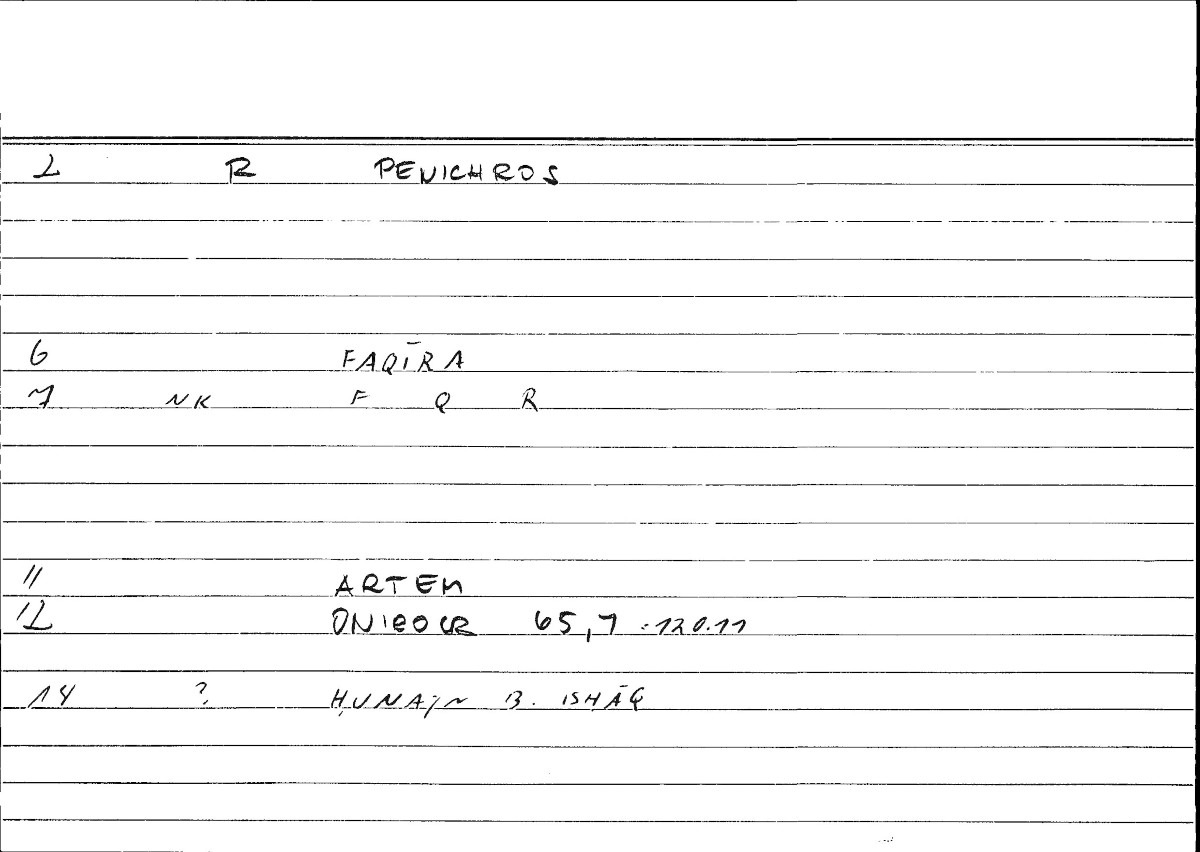 2 R PENICHROS
6 FAQĪRA
7 NK F Q R
11 ARTEM
12 ONIROCR 65,7 = 120.11
14 ? ḤUNAJN B. ISHĀQ